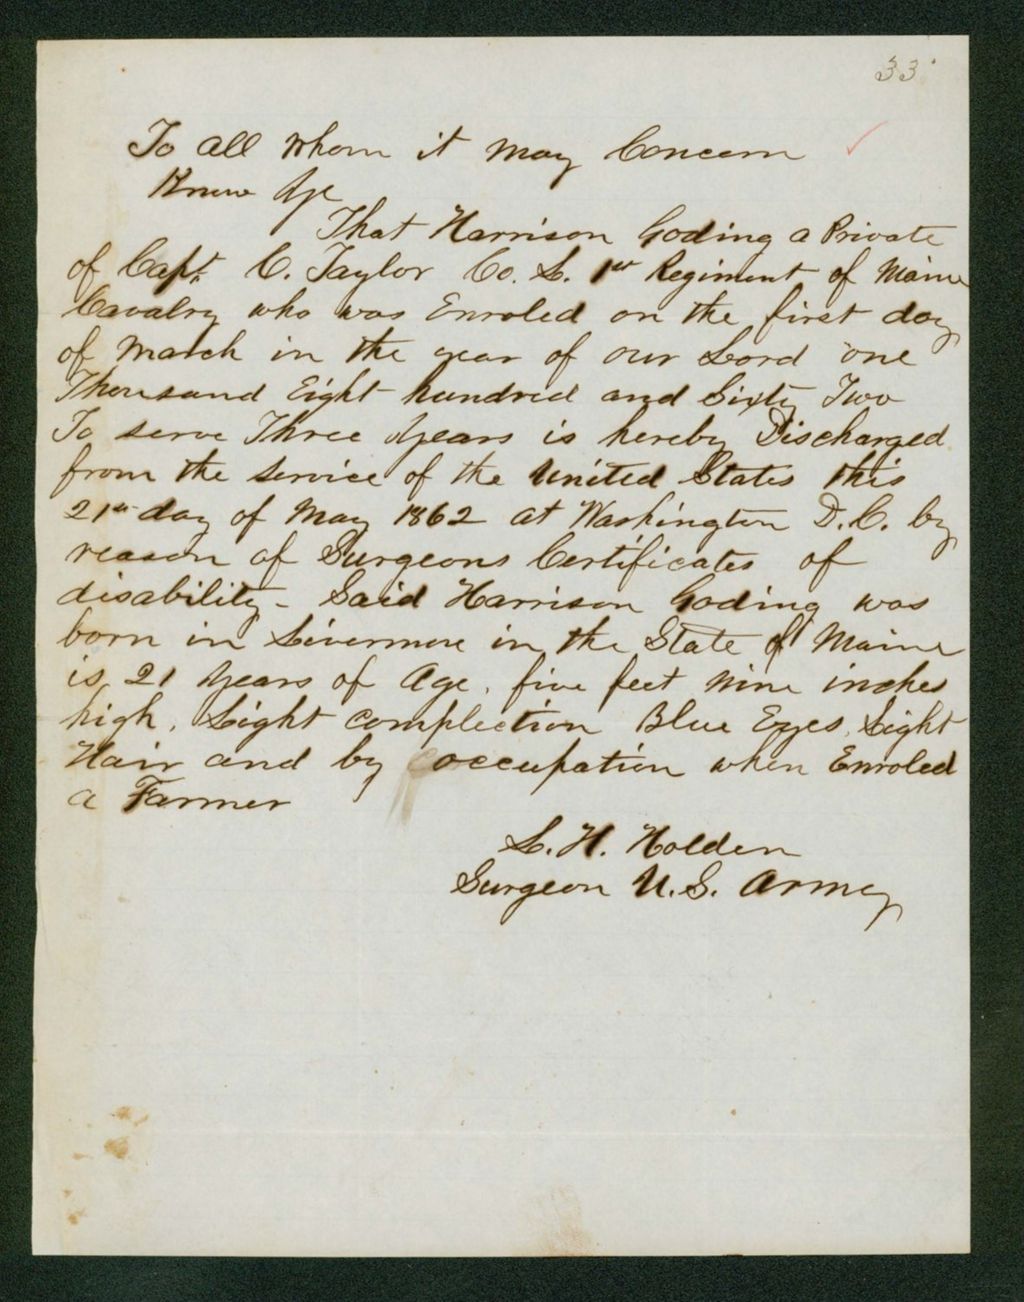 33
To all whom it may Concern
Know Ye
That Harrison Goding a Private
of Capt. C. Taylor Co. L. 1st Regiment of Maine
Cavalry who was Enroled on the first day
of March in the year of our Lord one
Thousand Eight hundred and Sixty Two
To serve Three Years is hereby Discharged
from the service of the United States this
21st day of May 1862 at Washington D.C. by
reason of Surgeons Certificates of
disability - Said Harrison Goding was
born in Livermore in the State of Maine
is 21 Years of Age, five feet nine inches
high, Light complection Blue Eyes, Light
Hair and by occupation when Enroled
a Farmer
L. H. Holden
Surgeon U.S. Army